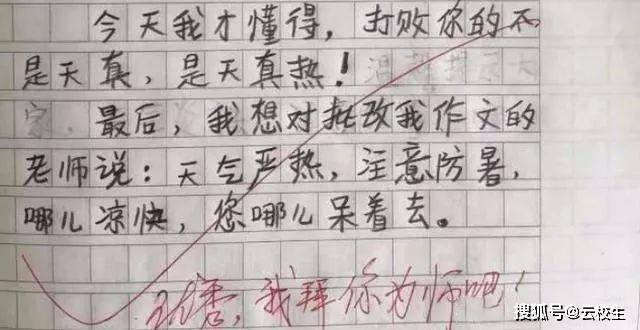 今天我才懂得，打败你的不
是天真，是天真热！
最后，我想对批改我作文的
老师说：天气严热，注意防暑，
哪儿凉快，您哪儿呆着去。
优秀，我拜你为师吧！
搜狐号@云校生